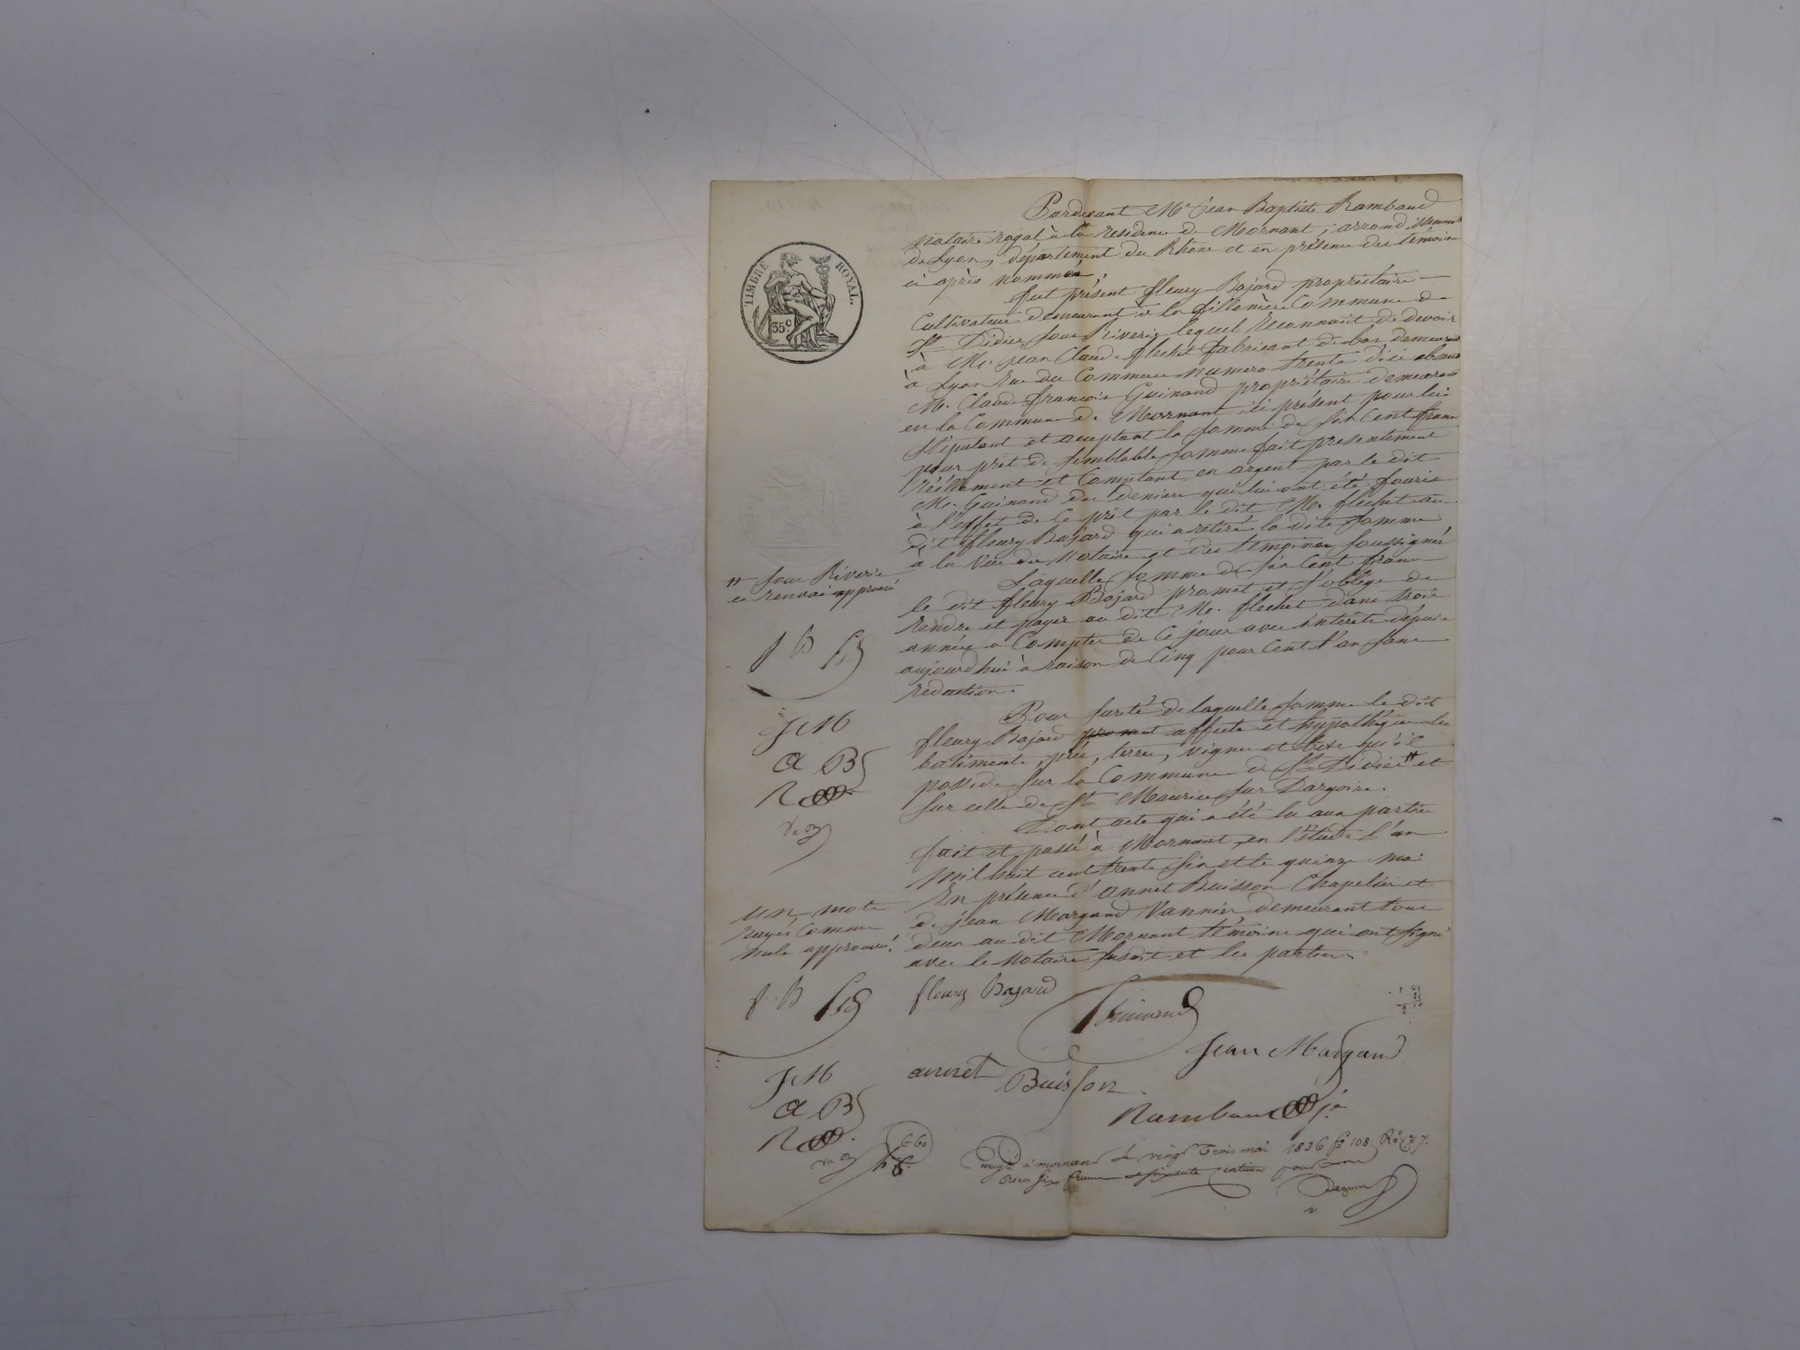 TIMBRE ROYAL.
35c
Pardevant Me Jean Baptiste Rambaud
notaire royal à la résidence de Mornant, arrondissement
de Lyon, département du Rhône et en présence des témoins
ci après nommés;
fut présent fleury Bajard propriétaire
Cultivateur demeurant à la fillonière Commune de
St Didier sous Riverie lequel Reconnait de devoir
à Mr. jean Claude flechet fabricant de bas demeurant
à Lyon Rue du Commerce numero trente dici absent
Mr. Claude françois Guinand propriétaire demeurant
en la Commune de Mornant ici présent pour lui
Stipulant et acceptant la somme de six Cent francs
pour prêt de semblable somme fait présentement
Réellement et Comptant en argent par le dit
Mr. Guinand des deniers qui lui ont été fournis
à l'effet de Ce prêt par le dit Mr. flechet au
dit fleury Bajard qui a retiré la dite somme
à la Vue du Notaire et des temoins soussignés
Laquelle somme de six Cent francs
le dit fleury Bajard promet et s'oblige de
Rendre et payer au dit Mr. flechet dans trois
années a Compter de Ce jour avec intérêts depuis
aujourdhui à Raison de Cinq pour Cent l'an sans
réduction.
Pour sureté de laquelle somme le dit
fleury Bajard promet affecte et hypothéque les
batiments, prés, terres, vignes et bois qu'il
possède sur la Commune de St Didier # et
sur celle de St Maurice sur Dargoire.
Dont acte qui a été lu aux parties
fait et passé à Mornant en l'étude l'an
Mil huit cent trente six et le quinze mai
En présence d'annet Buisson Chapelier et
de jean Margand Vannier demeurant tous
deux au dit Mornant témoins qui ont signé
avec le Notaire susdit et les parties.
# sous Riverie
ce renvoi approuvé
f B
J M
a B
R
un mot
rayés Comme
nuls approuvé.
f. B
J M
a B
R
6.60
fleury Bajard
Guinand
Jean Margand
annet Buisson
Rambaud
à mornant le vingt trois mai 1836 fo 108
Reçu six francs soixante centimes